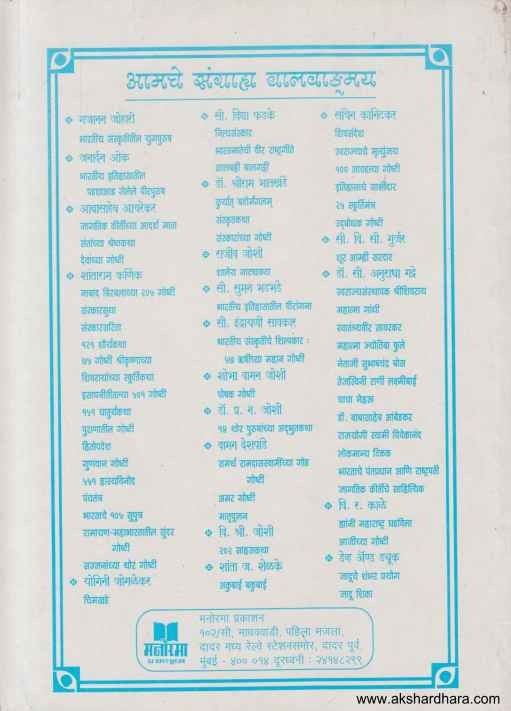 आमचे संग्राह्य बालवाङ्मय
गजानन जोहारी
भारतीय संस्कृतीतील युगपुरुष
जनार्दन ओक
भारतीय इतिहासातील
पडद्याआड गेलेले वीरपुरुष
आबासाहेब आचरेकर
जागतिक कीर्तीच्या आदर्श माता
संतांच्या श्रेष्ठकथा
देवांच्या गोष्टी
शांताराम कर्णिक
बादशहा बिरबलाच्या २०५ गोष्टी
संस्कारसुधा
संस्कारसरिता
१२१ शौर्यकथा
७५ गोष्टी श्रीकृष्णाच्या
शिवरायांच्या स्फूर्तिकथा
इसापनीतीतल्या ५०१ गोष्टी
१५१ चातुर्यकथा
पुराणातील गोष्टी
हितोपदेश
गुणवान गोष्टी
५५१ हास्यविनोद
पंचतंत्र
भारताचे १०५ सुपुत्र
रामायण-महाभारतातील सुंदर
गोष्टी
सज्जनांच्या थोर गोष्टी
योगिनी जोगळेकर
चिमखडे
सौ. विद्या फडके
नित्यसंस्कार
भारतमातेची वीर राष्ट्रगीते
आमचही बालगाणी
डॉ. श्रीराम भालखंडे
कुर्यात् बटोर्मंगलम्
संस्कृतकथा
संस्काराच्या गोष्टी
राजीव जोशी
शालेय नाट्यछटा
सौ. सुमन भडभडे
भारतीय इतिहासातील वीरांगना
सौ. इंद्रायणी सावकार
भारतीय संस्कृतीचे शिल्पकार :
५७ ऋषींच्या महान गोष्टी
शोभा वामन जोशी
पोषक गोष्टी
डॉ. प्र. न. जोशी
१५ थोर पुरुषांच्या अद्भुतकथा
वामन देशपांडे
समर्थ रामदासस्वामींच्या गोड
गोष्टी
अमर गोष्टी
मातृपूजन
वि. श्री. जोशी
२०२ साहसकथा
शांता ज. शेळके
अकुबाई बकुबाई
सचिन कानिटकर
शिवसंदेश
स्वराज्याचे मृत्युंजय
१०० आवडत्या गोष्टी
इतिहासाचे साक्षीदार
२५ स्फूर्तिमंत्र
उद्बोधक गोष्टी
सौ. वि. सी. गुर्जर
शूर आम्ही सरदार
डॉ. सौ. अनुराधा गद्रे
स्वराज्यसंस्थापक श्रीशिवराय
महात्मा गांधी
स्वातंत्र्यवीर सावरकर
महात्मा ज्योतिबा फुले
नेताजी सुभाषचंद्र बोस
तेजस्विनी राणी लक्ष्मीबाई
चाचा नेहरू
डॉ. बाबासाहेब आंबेडकर
राजयोगी स्वामी विवेकानंद
लोकमान्य टिळक
भारताचे पंतप्रधान आणि राष्ट्रपती
जागतिक कीर्तीचे साहित्यिक
वि. र. काळे
ज्यांनी महाराष्ट्र घडविला
आजीच्या गोष्टी
डेव्ह अँण्ड ड्यूक
जादूचे शंभर प्रयोग
जादू शिका
मनोरमा
मनोरमा प्रकाशन
१०२/सी, माधववाडी, पहिला मजला,
दादर मध्य रेल्वे स्टेशनसमोर, दादर पूर्व,
मुंबई - ४०० ०१४ दूरध्वनी : २४१४८२९९
www.akshardhara.com